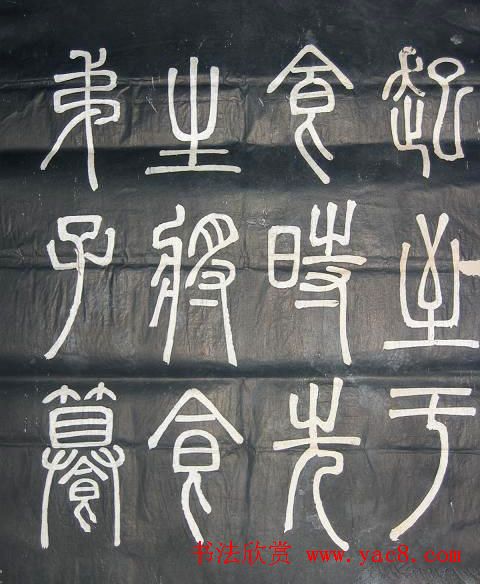 起至于
食時先
生將食
弟子籑
书法欣赏 www.yac8.com